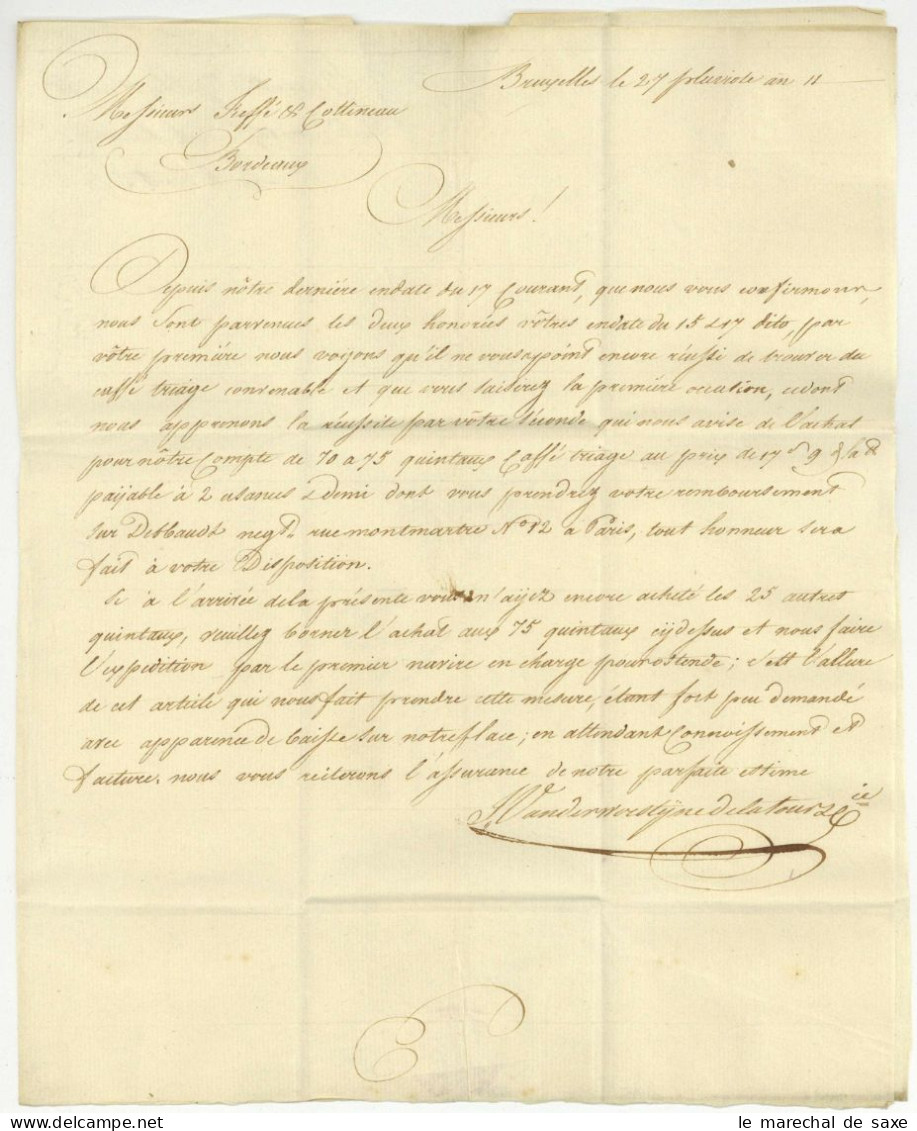 Bruxelles le 27 pluviose an 11
Messieurs Feffé & Cottineau
Bordeaux
Messieurs!
Depuis nôtre derniére endate du 17 Courant, que nous vous confirmons,
nous sont parvenues les deux honorées vôtres endate du 15 & 17 dito, par
vôtre premiére nous voyons qu'il ne vous a point encore réussi de trouver du
caffé triage convenable et que vous saiserez la premiére ocation, et dont
nous apprenons la réussite par vôtre seconde qui nous avise de l'achat
pour nôtre Compte de 70 a 75 quintaux Caffé triage au prix de 17 s 9 d la
payable à 2 usances & demi dont vous prendrez votre remboursement
sur Debbaudt negt. rue montmartre No 12 a Paris, tout honneur sera
fait à votre Disposition.
Si à l'arrivée de la présente vous n'ayez encore acheté les 25 autres
quintaux, veuillez borner l'achat aux 75 quintaux cydessus et nous faire
l'expedition par le premier navire en charge pour ostende; c'est l'allure
de cet article qui nous fait prendre cette mesure, étant fort peu demandé
avec apparence de baisse sur notre place; en attendant Connoissement et
facture, nous vous reiterons l'assurance de notre parfaite estime
Vanderwersteyne Delatour & Cie
le marechal de saxe